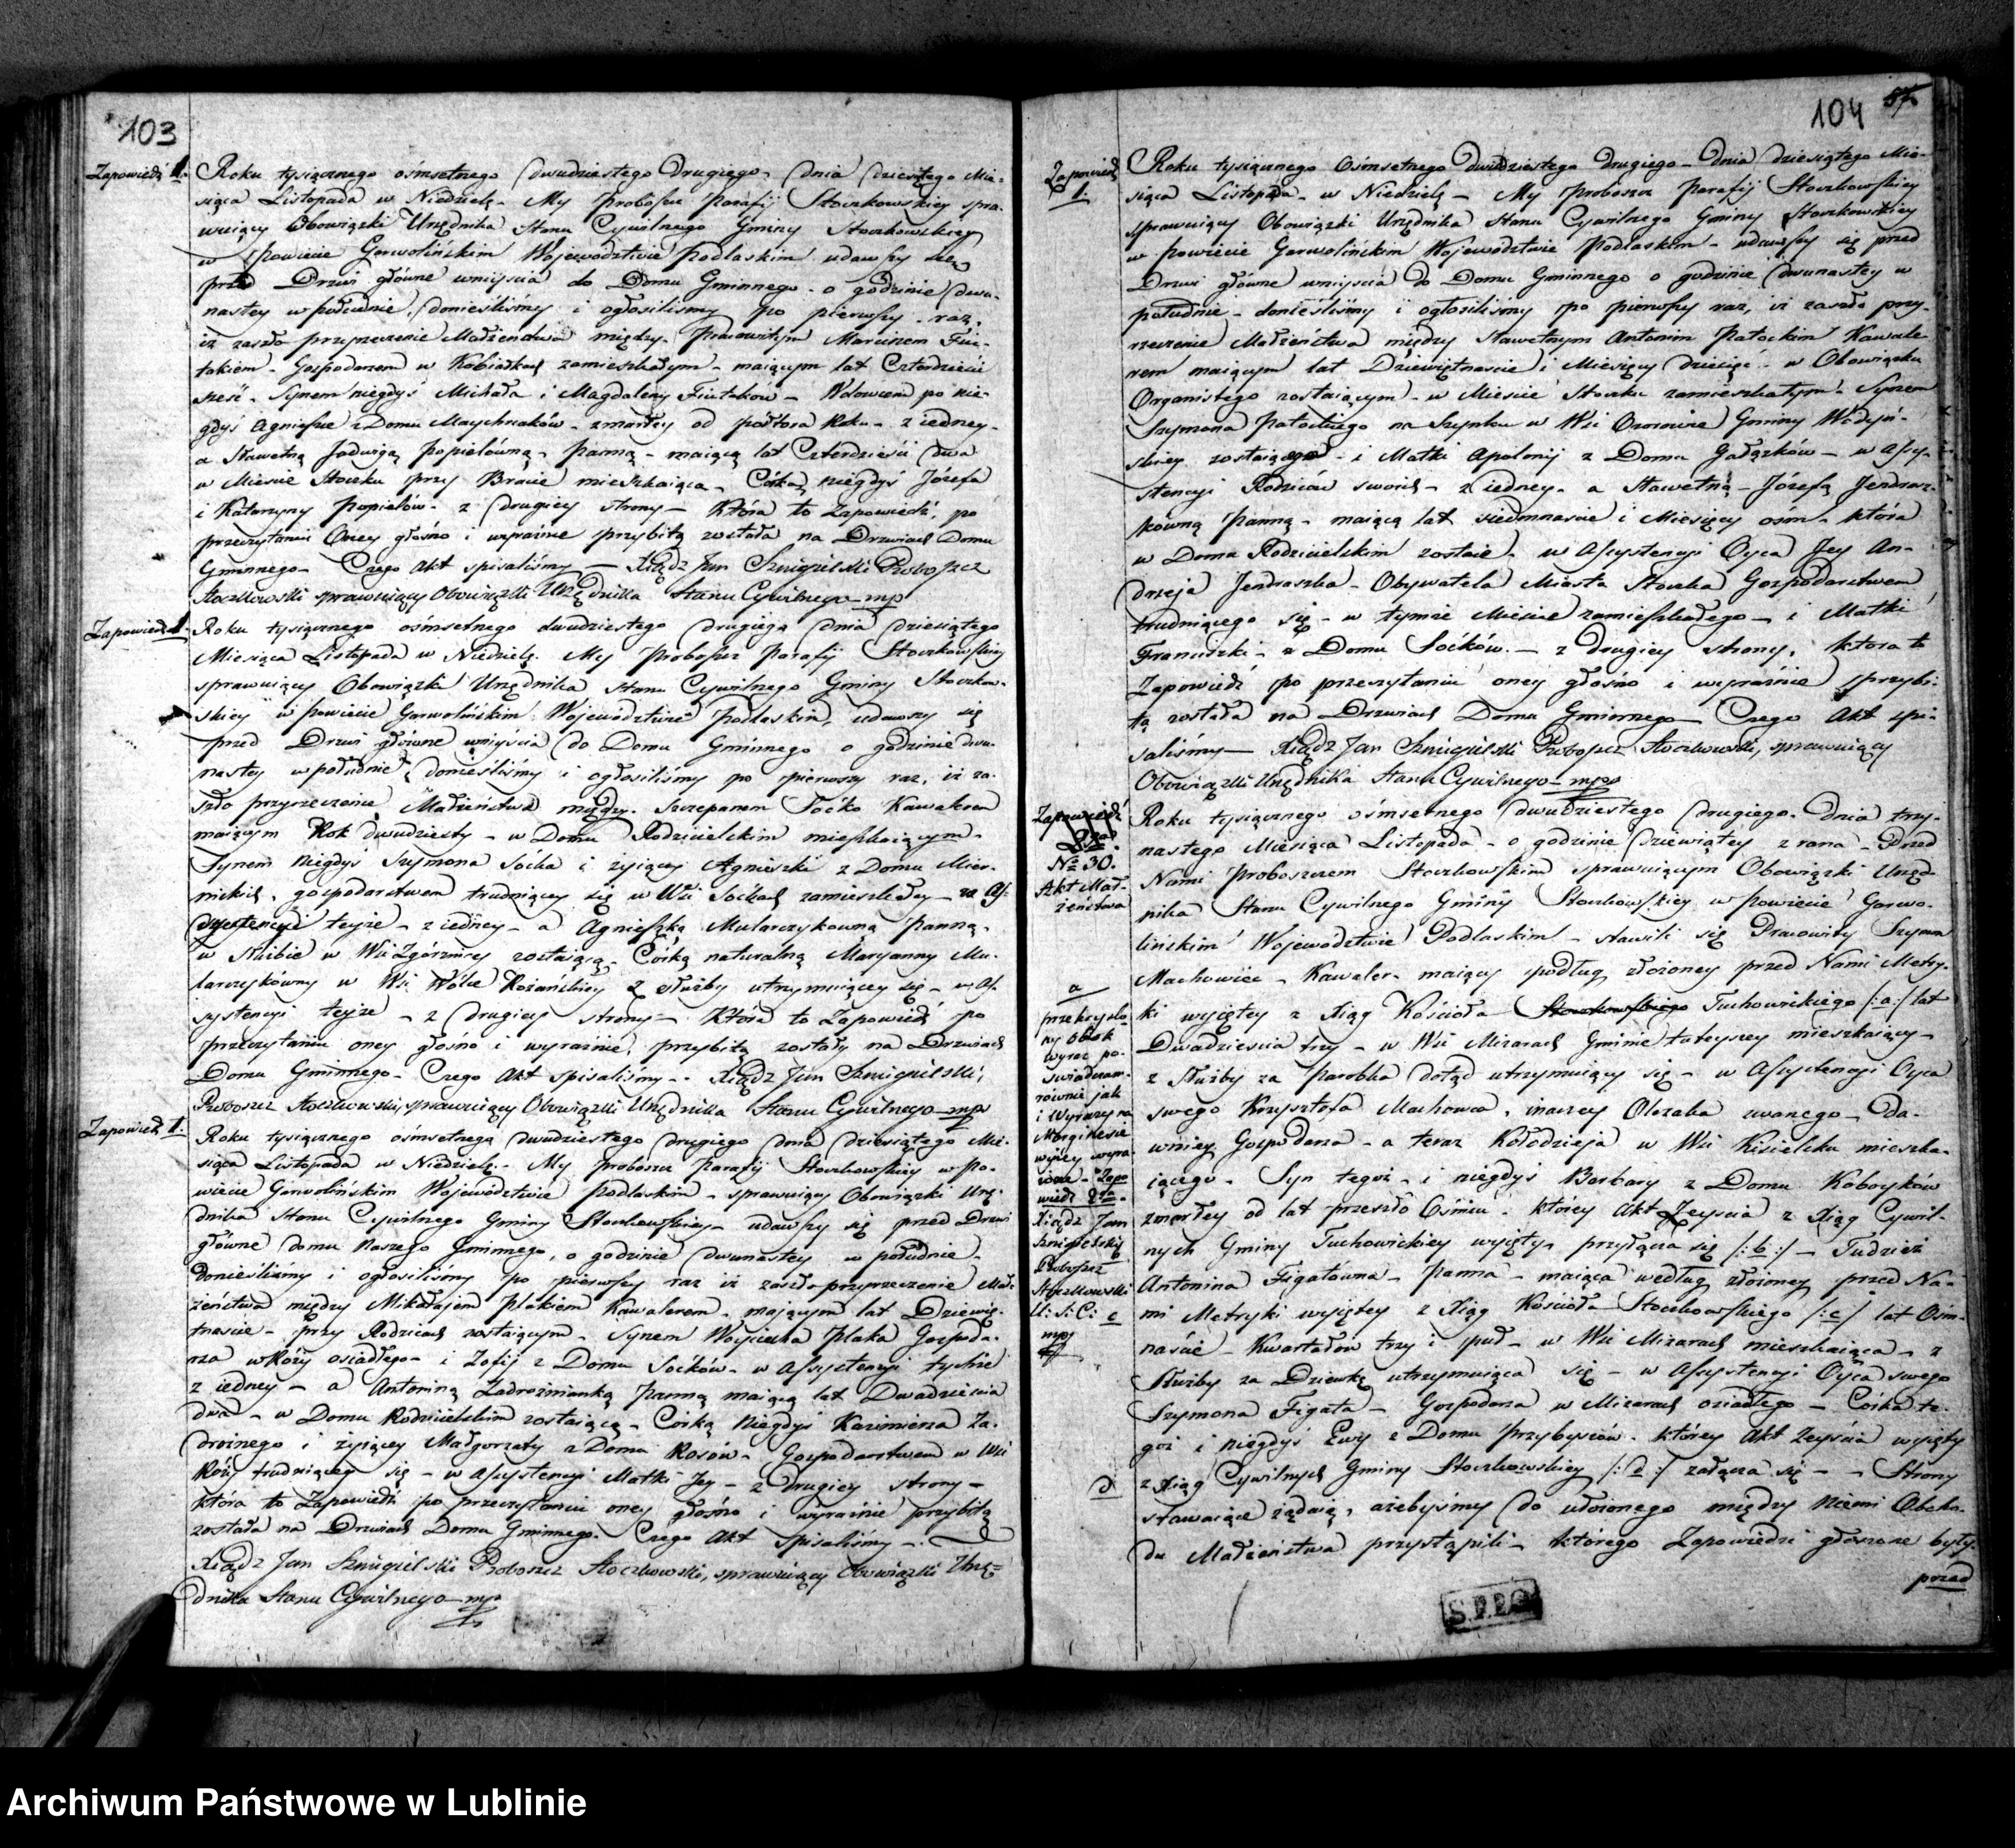 103
Zapowiedź 1.
Roku tysiącznego ośmsetnego dwudziestego Drugiego, dnia dziesiątego Mie-
siąca Listopada w Niedzielę - My Proboszcz Parafij Stoczkowskiey spra-
wuiący Obowiązki Urzędnika Stanu Cywilnego Gminy Stoczkowskiey
w Powiecie Garwolińskim Wojewodztwie Podlaskim udawszy się
przed Drzwi główne wniyścia do Domu Gminnego o godzinie dwu-
nastey w południe, donieśliśmy i ogłosiliśmy po pierwszy raz,
iż zaszło przyrzeczenie Małżeństwa między Pracowitym Marcinem Fiu-
takiem - Gospodarzem w Kobiałkach zamieszkałym - maiącym lat Czterdzieści
sześć - Synem niegdyś Michała i Magdaleny Fiutaków - Wdowcem po nie-
gdyś Agniesce z Domu Maychraków - zmarłey od półtora Roku - z iedney -
a Sławetną Jadwigą Popielówną - Panną - maiącą lat Czterdzieści dwa
w Miescie Stoczku przy Bracie mieszkaiąca - Córką niegdyś Józefa
i Katarzyny Popielów - z drugiey strony - Która to Zapowiedź, po
przeczytaniu Oney głośno i wyraźnie przybitą została na Drzwiach Domu
Gminnego - Czego Akt spisaliśmy - Xiądz Jan Szmigielski Proboszcz
Stoczkowski sprawuiący Obowiązki Urzędnika Stanu Cywilnego mp
Zapowiedź 1.
Roku tysiącznego ośmsetnego dwudziestego drugiego dnia dziesiątego
Miesiąca Listopada w Niedzielę. My Proboszcz Parafij Stoczkowskiey
sprawuiący Obowiązki Urzędnika Stanu Cywilnego Gminy Stoczkow-
skiey w Powiecie Garwolińskim Wojewodztwie Podlaskim, udawszy się
przed Drzwi główne wniyścia do Domu Gminnego o godzinie dwu-
nastey w południe, donieśliśmy i ogłosiliśmy po pierwszy raz, iż za-
szło przyrzeczenie Małżeństwa między Szczepanem Soćko Kawalerem
maiącym Rok dwudziesty - w Domu Rodzicielskim mieszkaiącym -
Synem niegdyś Szymona Socka i żyiącey Agnieszki z Domu Mier-
nickich, gospodarstwem trudniącey się w Wsi Soćkach zamieszkałey - w As-
systencyi teyże - z iedney - a Agnieszką Mularczykowną Panną,
w Służbie w Wsi Zgórznicy zostaiącą - Córką naturalną Maryanny Mu-
larczykówny w Wsi Wólce Rożańskiey z służby utrzymuiącey się - w As-
systencyi teyże - z drugiey strony - Która to Zapowiedź po
przeczytaniu oney głośno i wyraźnie, przybitą została na Drzwiach
Domu Gminnego - Czego Akt spisaliśmy - Xiądz Jan Szmigielski,
Proboszcz Stoczkowski, sprawuiący Obowiązki Urzędnika Stanu Cywilnego mp
Zapowiedź 1.
Roku tysiącznego ośmsetnego dwudziestego drugiego dnia dziesiątego Mie-
siąca Listopada w Niedzielę - My Proboszcz Parafij Stoczkowskiey w Po-
wiecie Garwolińskim Wojewodztwie Podlaskim - sprawuiący Obowiązki Urzę-
dnika Stanu Cywilnego Gminy Stoczkowskiey - udawszy się przed Drzwi
główne domu Naszego Gminnego, o godzinie dwunastey w południe -
Donieśliśmy i ogłosiliśmy po pierwszy raz iż zaszło przyrzeczenie Mał-
żeństwa między Mikołajem Plakiem Kawalerem - mającym lat Dziewię-
tnaście - przy Rodzicach zostaiącym - Synem Woyciecha Plaka Gospoda-
rza w Róży osiadłego - i Zofij z Domu Soćków - w Assystencyi tychże
z iedney - a Antoniną Zadrożnianką Panną maiącą lat Dwadzieścia
dwa - w Domu Rodzicielskim zostaiącą - Córką Niegdyś Kazimierza Za-
drożnego i żyiącey Małgorzaty z Domu Rosów - Gospodarstwem w Wsi
Róży trudniącey się - w Assystencyi Matki Jey - z drugiey strony -
która to Zapowiedź po przeczytaniu oney głośno i wyraźnie przybitą
została na Drzwiach Domu Gminnego. Czego Akt spisaliśmy -.
Xiądz Jan Szmigielski Proboszcz Stoczkowski, sprawuiący Obowiązki Urzę-
dnika Stanu Cywilnego mp
104 57
Zapowiedź
1.
Roku tysiącznego Ośmsetnego dwudziestego drugiego - dnia dziesiątego Mie-
siąca Listopada - w Niedzielę - My Proboszcz Parafij Stoczkowskiey
sprawuiący Obowiązki Urzędnika Stanu Cywilnego Gminy Stoczkowskiey
w Powiecie Garwolińskim Wojewodztwie Podlaskim - udawszy się przed
Drzwi główne wniyścia do Domu Gminnego o godzinie dwunastey w
południe - donieśliśmy i ogłosiliśmy po pierwszy raz, iż zaszło przy-
rzeczenie Małżeństwa między Sławetnym Antonim Patockim Kawale-
rem maiącym lat Dziewiętnaście i Miesięcy dziesięć - w Obowiązku
Organistego zostaiącym - w Mieście Stoczku zamieszkałym - Synem
Szymona Patockiego na Szynku w Wsi Gminy Wodyń-
skiey zostaiącego - i Matki Apolonij z Domu Gałązków - w Assy-
stencyi Rodziców swoich - z iedney - a Sławetną - Józefą Jendrasz-
kówną Panną - maiącą lat siedmnaście i Miesięcy ośm - która
w Domu Rodzicielskim zostaie - w Assystencyi Oyca Jey An-
drzeja Jendraszka - Obywatela Miasta Stoczka Gospodarstwem
trudniącego się - w tymże Mieście zamieszkałego - i Matki
Franciszki - z Domu Soćków. - z drugiey strony, która to
Zapowiedź po przeczytaniu oney głośno i wyraźnie przybi-
tą została na Drzwiach Domu Gminnego - Czego Akt spi-
saliśmy - Xiądz Jan Szmigielski Proboszcz Stoczkowski, sprawuiący
Obowiązki Urzędnika Stanu Cywilnego mp
Zapowiedź
2ga.
No 30.
Akt Mał-
żeństwa
Roku tysiącznego ośmsetnego dwudziestego drugiego dnia trzy-
nastego Miesiąca Listopada - o godzinie dziewiątey z rana - Przed
Nami Proboszczem Stoczkowskim sprawuiącym Obowiązki Urzęd-
nika Stanu Cywilnego Gminy Stoczkowskiey w Powiecie Garwo-
lińskim Wojewodztwie Podlaskim - stawili się Pracowity Szymon
Machowiec - Kawaler - maiący podług złożoney przed Nami Metry-
ki wyiętey z Xiąg Kościoła Stoczkowskiego Tuchowickiego /: a :/ lat
Dwadzieścia trzy - w Wsi Mizarach Gminie tuteyszey mieszkaiący -
z Służby za Parobka dotąd utrzymuiący się - w Assystencyi Oyca
swego Krzysztofa Machowca, inaczey Olszaka zwanego - Da-
wniey Gospodarza - a teraz Kołodzieja w Wsi Kisielsku mieszka-
iącego - Syn tegoż - i niegdyś Barbary z Domu Koboyków
zmarłey od lat przeszło Ośmiu - którey Akt Zeyścia z Xiąg Cywil-
nych Gminy Tuchowickiey wyięty, przyłącza się /: b :/ - Tudzież
Antonina Figatówna - Panna - maiąca według złożoney przed Na-
mi Metryki wyiętey z Xiąg Kościoła Stoczkowskiego /: c :/ lat Ośm-
naście - Kwartałów trzy i puł - w Wsi Mizarach mieszkaiąca - z
Służby za Dziewkę utrzymuiąca się - w Assystencyi Oyca swego
Szymona Figata - Gospodarza w Mizarach osiadłego - Córka te-
goż i niegdyś Ewy z Domu Przybyszów - którey Akt Zeyścia wyięty
z Xiąg Cywilnych Gminy Stoczkowskiey /: d :/ załącza się - - Strony
stawaiące żądaią, ażebyśmy do ułożonego między niemi Obcho-
du Małżeństwa przystąpili - którego Zapowiedzi głoszone były
przed
a
przekryślo-
ny obok
wyraz po-
świadczam
równie jak
i Wyrazy na
Marginesie
wyżey wyra-
żone - Zapo-
wiedź 2ga -
Xiądz Jan
Szmigielski
Proboszcz
Stoczkowski
U: S: C: c
mp
d
Archiwum Państwowe w Lublinie